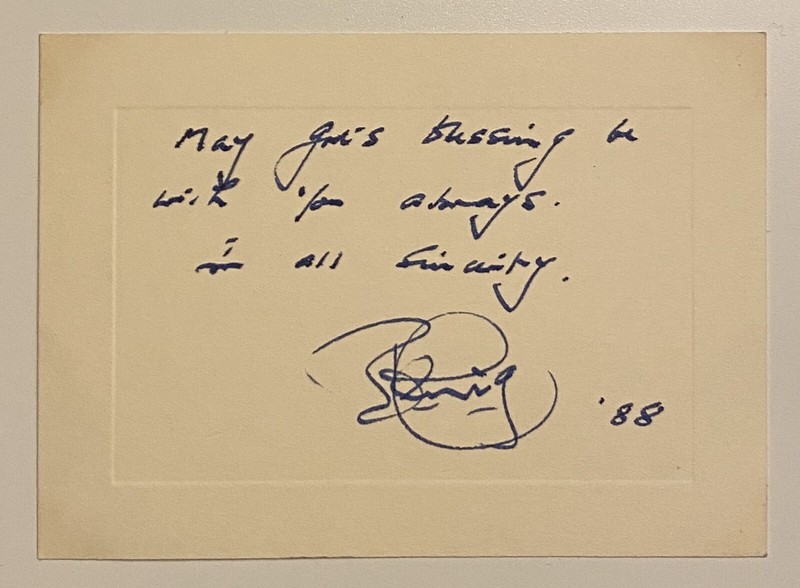 May God's blessing be
with you always.
in all sincerity.
'88